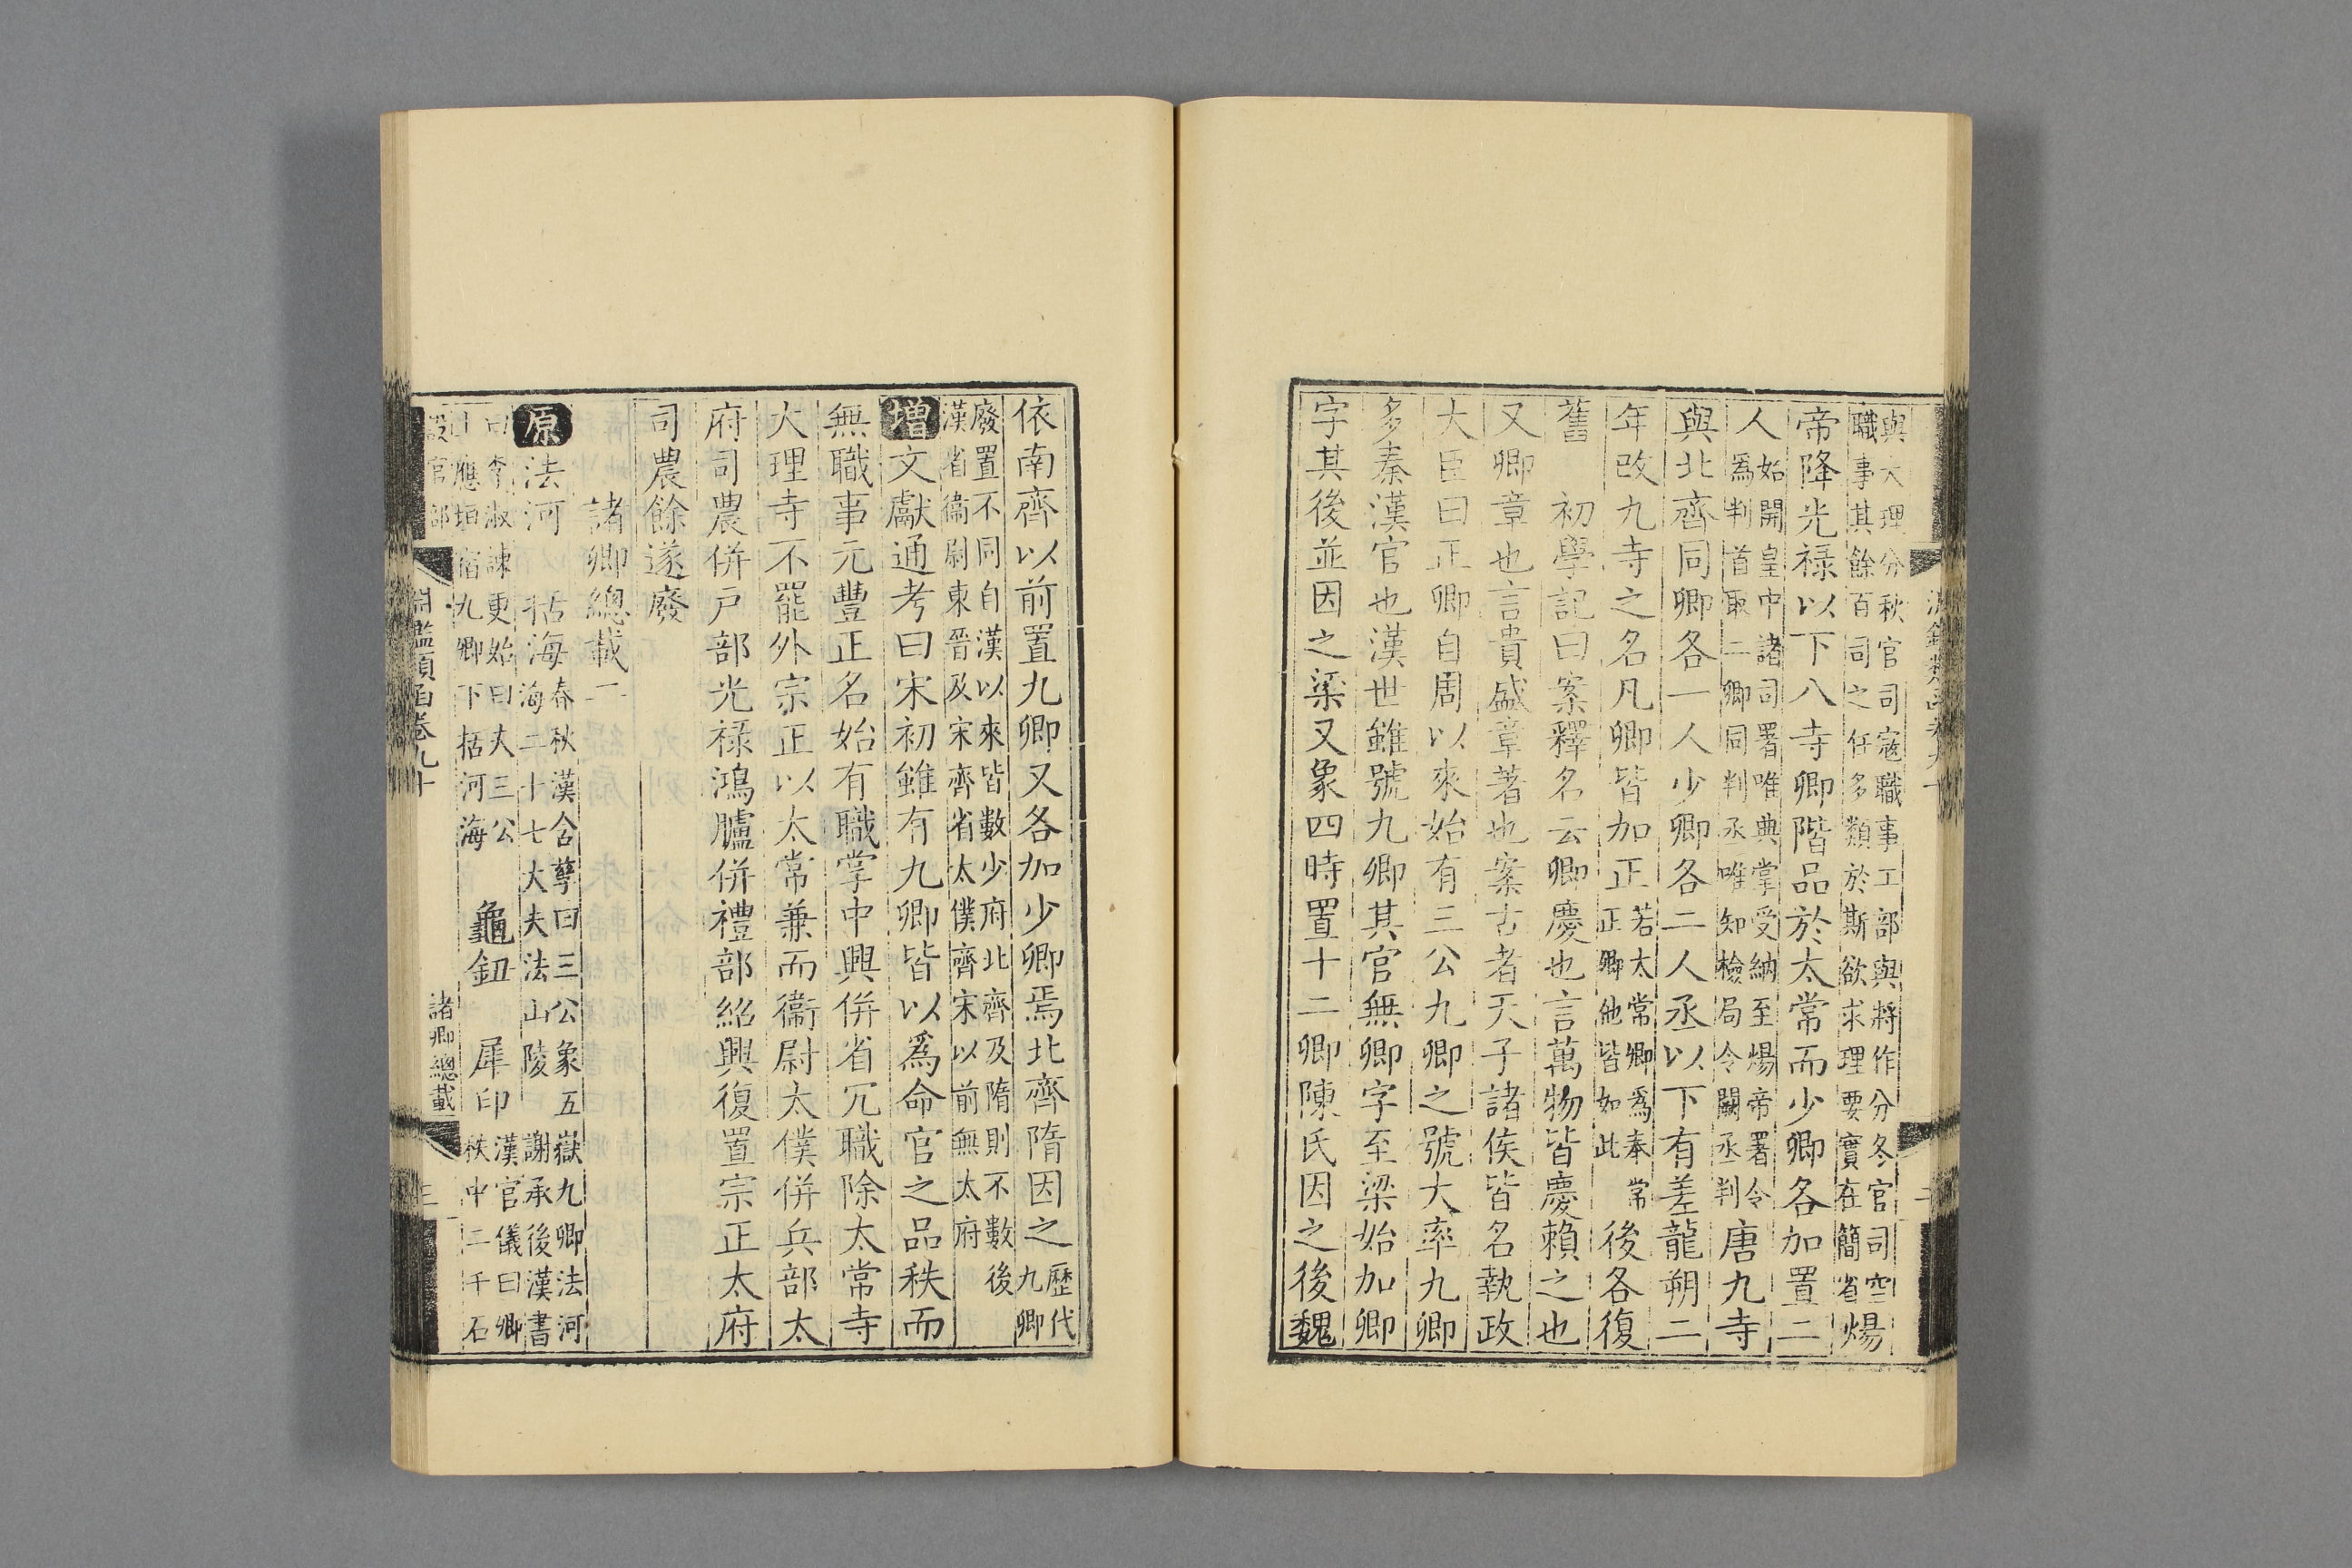 與大理分秋官司寇職事工部與將作分冬官司空
職事其餘百司之任多類於斯欲求理要實在簡省煬
帝降光祿以下八寺卿階品於太常而少卿各加置二
人始開皇中諸司署唯典掌受納至煬帝署令
爲判首取二卿同判丞唯知檢局令闕丞判唐九寺
與北齊同卿各一人少卿各二人丞以下有差龍朔二
年改九寺之名凡卿皆加正若太常卿爲奉常
正卿他皆如此後各復
舊 初學記曰案釋名云卿慶也言萬物皆慶賴之也
又卿章也言貴盛章著也案古者天子諸侯皆名執政
大臣曰正卿自周以來始有三公九卿之號大率九卿
多秦漢官也漢世雖號九卿其官無卿字至梁始加卿
字其後並因之梁又象四時置十二卿陳氏因之後魏
依南齊以前置九卿又各加少卿焉北齊隋因之歷代
九卿
廢置不同自漢以來皆數少府北齊及隋則不數後
漢省衞尉東晉及宋齊省太僕齊宋以前無太府
增文獻通考曰宋初雖有九卿皆以爲命官之品秩而
無職事元豐正名始有職掌中興併省冗職除太常寺
大理寺不罷外宗正以太常兼而衞尉太僕併兵部太
府司農併戸部光祿鴻臚併禮部紹興復置宗正太府
司農餘遂廢
諸卿總載二
原法河 括海春秋漢含孳曰三公象五嶽九卿法河
海二十七大夫法山陵 謝承後漢書
曰李淑諫更始曰夫三公
上應垣宿九卿下括河海 龜鈕 犀印漢官儀曰卿
秩中二千石
淵鑑類函卷九十
設官部
諸卿總載
三